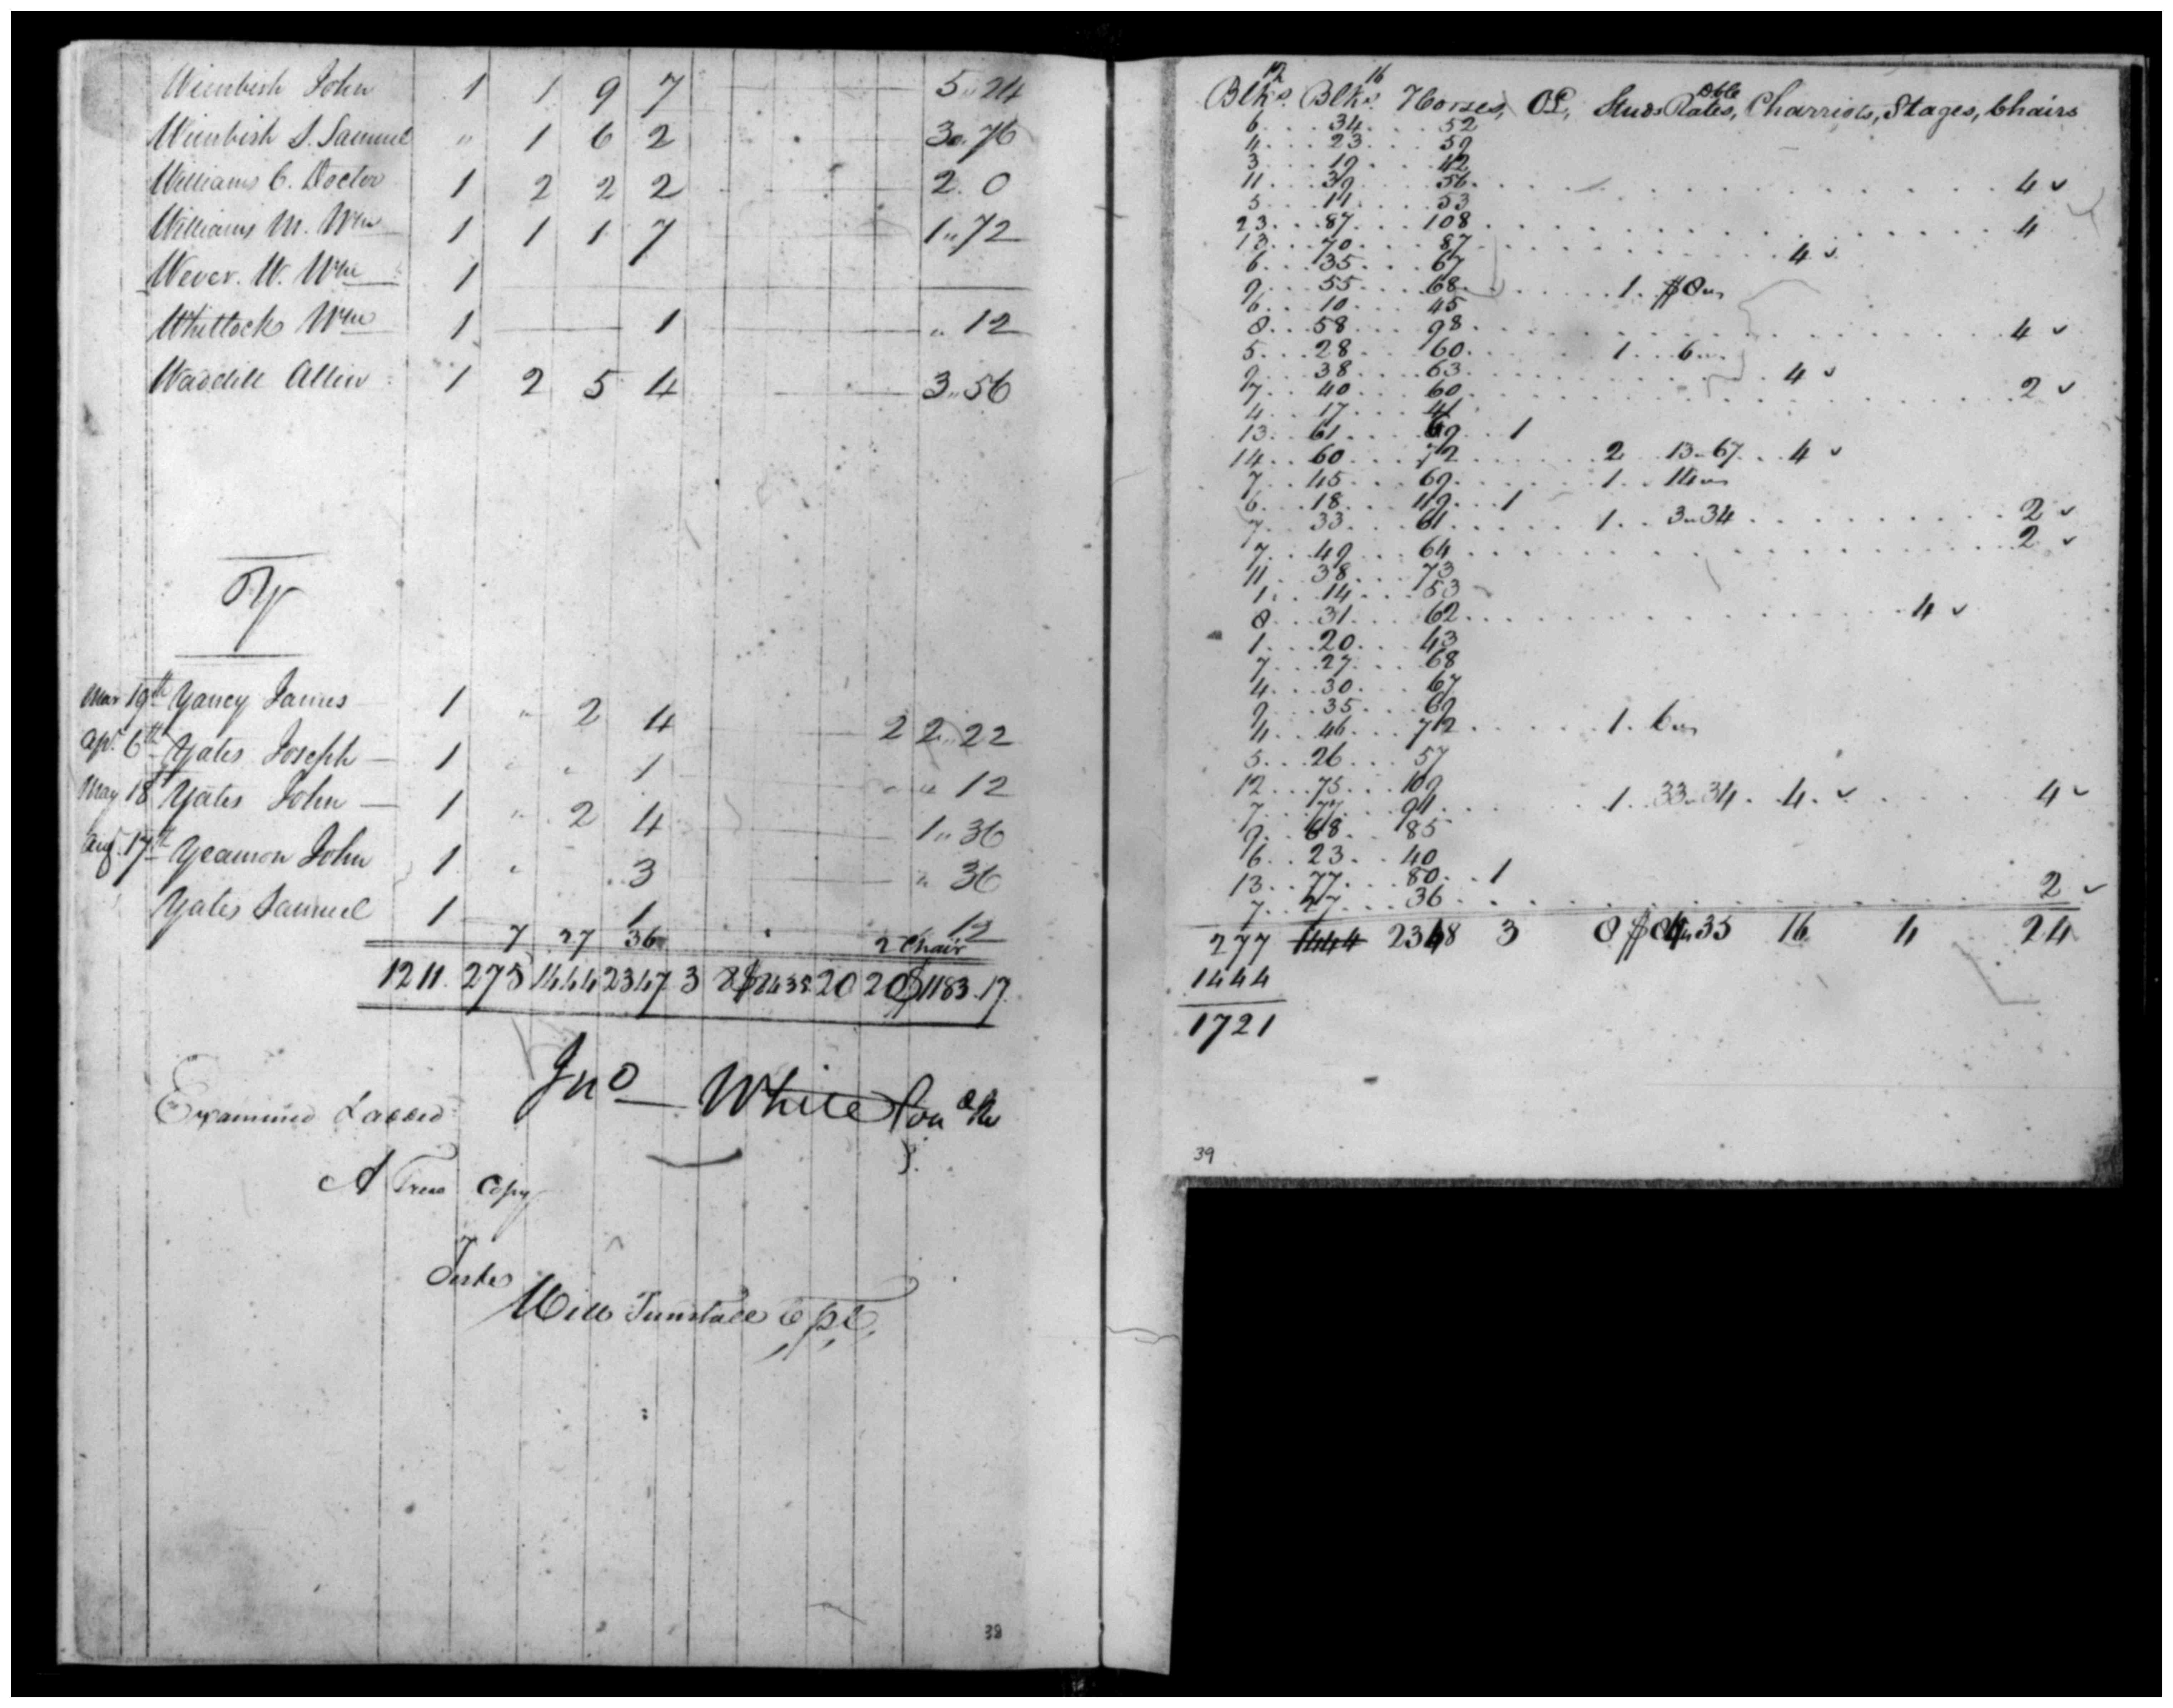 Wimbish John 1 1 9 7 5..24
Wimbish S. Samuel " 1 6 2 3..76
Williams C. Doctor 1 2 2 2 2. 0
Williams M. Wm 1 1 1 7 1..72
Wever. W. Wm 1
Whitlock Wm 1 1 " 12
Waddill Allin 1 2 5 4 3..56
Y
Mar 19th Yancy James 1 " 2 4 2 2..22
Apr. 6th Yates Joseph 1 " " 1 " 12
May 18 Yates John 1 " 2 4 1..36
Aug. 17th Yeamon John 1 " 3 " 36
Yates Samuel 1 1 12
7 27 36 2 Chair
1211. 275 1444 2347 3 8 $84 35 20 20 $1183.17
Jno White
Examined
A True Copy
Teste
Will Tunstall
38
Blks. 12 Blks. 16 Horses, OL, Studs Dble Rates, Charriots, Stages, Chairs
6 . . . 34 . . . 52
4 . . . 23 . . . 59
3 . . . 19 . . . 42
11 . . . 39 . . . 56 . . . 4 ✓
5 . . . 11 . . . 53
23 . . . 87 . . . 108 . . . 4
13 . . . 70 . . . 87 . . . 4 ✓
6 . . . 35 . . . 67
9 . . . 55 . . . 68 . . . 1. $8
6 . . . 10 . . . 45
8 . . . 58 . . . 98 . . . 4 ✓
5 . . . 28 . . . 60 . . . 1 . . . 6
9 . . . 38 . . . 63 . . . 4 ✓
7 . . . 40 . . . 60 . . . 2 ✓
4 . . . 17 . . . 41
13 . . 61 . . . 69 . . 1
14 . . 60 . . . 72 . . . 2 13..67 . . 4 ✓
7 . . . 45 . . . 69 . . . 1 . . 14
6 . . . 18 . . . 49 . . . 1
7 . . . 33 . . . 61 . . . 1 . . 3..34 . . . 2 ✓
7 . . . 49 . . . 64 . . . 2 ✓
11 . . 38 . . . 73
1 . . . 14 . . . 53
8 . . . 31 . . . 62 . . . 4 ✓
1 . . . 20 . . . 43
7 . . . 27 . . . 68
4 . . . 30 . . . 67
9 . . . 35 . . . 69
4 . . . 46 . . . 72 . . . 1. 6
5 . . . 26 . . . 57
12 . . . 75 . . . 109
7 . . . 77 . . . 94 . . . 1 . . 33..34 . 4. ✓ . . . 4 ✓
9 . . . 68 . . . 85
6 . . 23 . . 40
13 . . 77 . . . 80 . . 1
7 . . 27 . . . 36 . . . 2 ✓
277 1444 2348 3 8 $84..35 16 4 24
1444
1721
39